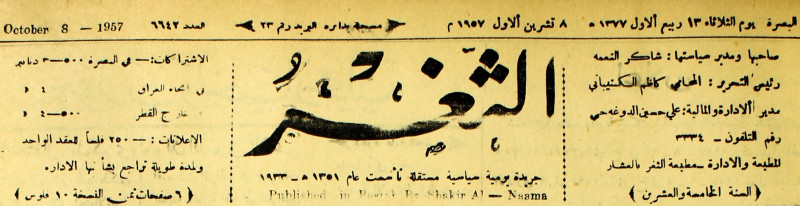 البصرة يوم الثلاثاء ١٣ ربيع الاول ١٣٧٧ ه ٨ تشرين الاول ١٩٥٧ م مسجلة بدائرة البريد رقم ٢٣ العدد ٦٦٤٢ October 8 - 1957
صاحبها ومدير سياستها : شاكر النعمه
رئيس التحرير : المحامي كاظم المكتبباني
مدير الادارة والمالية : علي حسين الدوغه جي
رقم التلفون - ٣٣٣٤
المطبعة والادارة - مطبعة الثغر بالعشار
( السنة الخامسة والعشرين )
الثغر
جريدة يومية سياسية مستقلة تأسست عام ١٣٥١ ه - ١٩٣٣
Published in Basrah By Shakir Al - Naama
الاشتراكات :— في البصرة ٥٠٠-٣ دنانير
في انحاء العراق ٤ د
خارج القطر ٥٠٠-٤ د
الاعلانات :— ٢٥٠ فلساً للعقد الواحد
ولمدة طويلة تراجع بشأنها الاداره
( ٦ صفحات ثمن النسخة ١٠ فلوس )